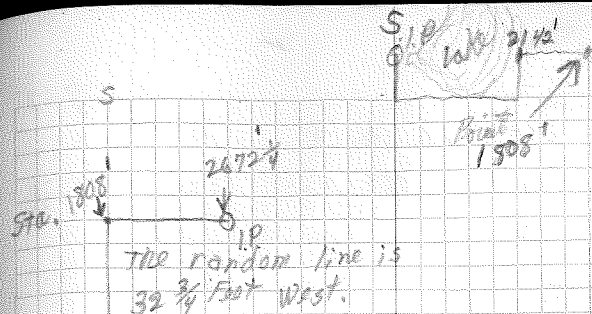 S
I.P
Lake
2142'
Point
1808'
S
1808'
2672 1/4'
Sta.
I.P.
The random line is
32 3/4 Feet West.